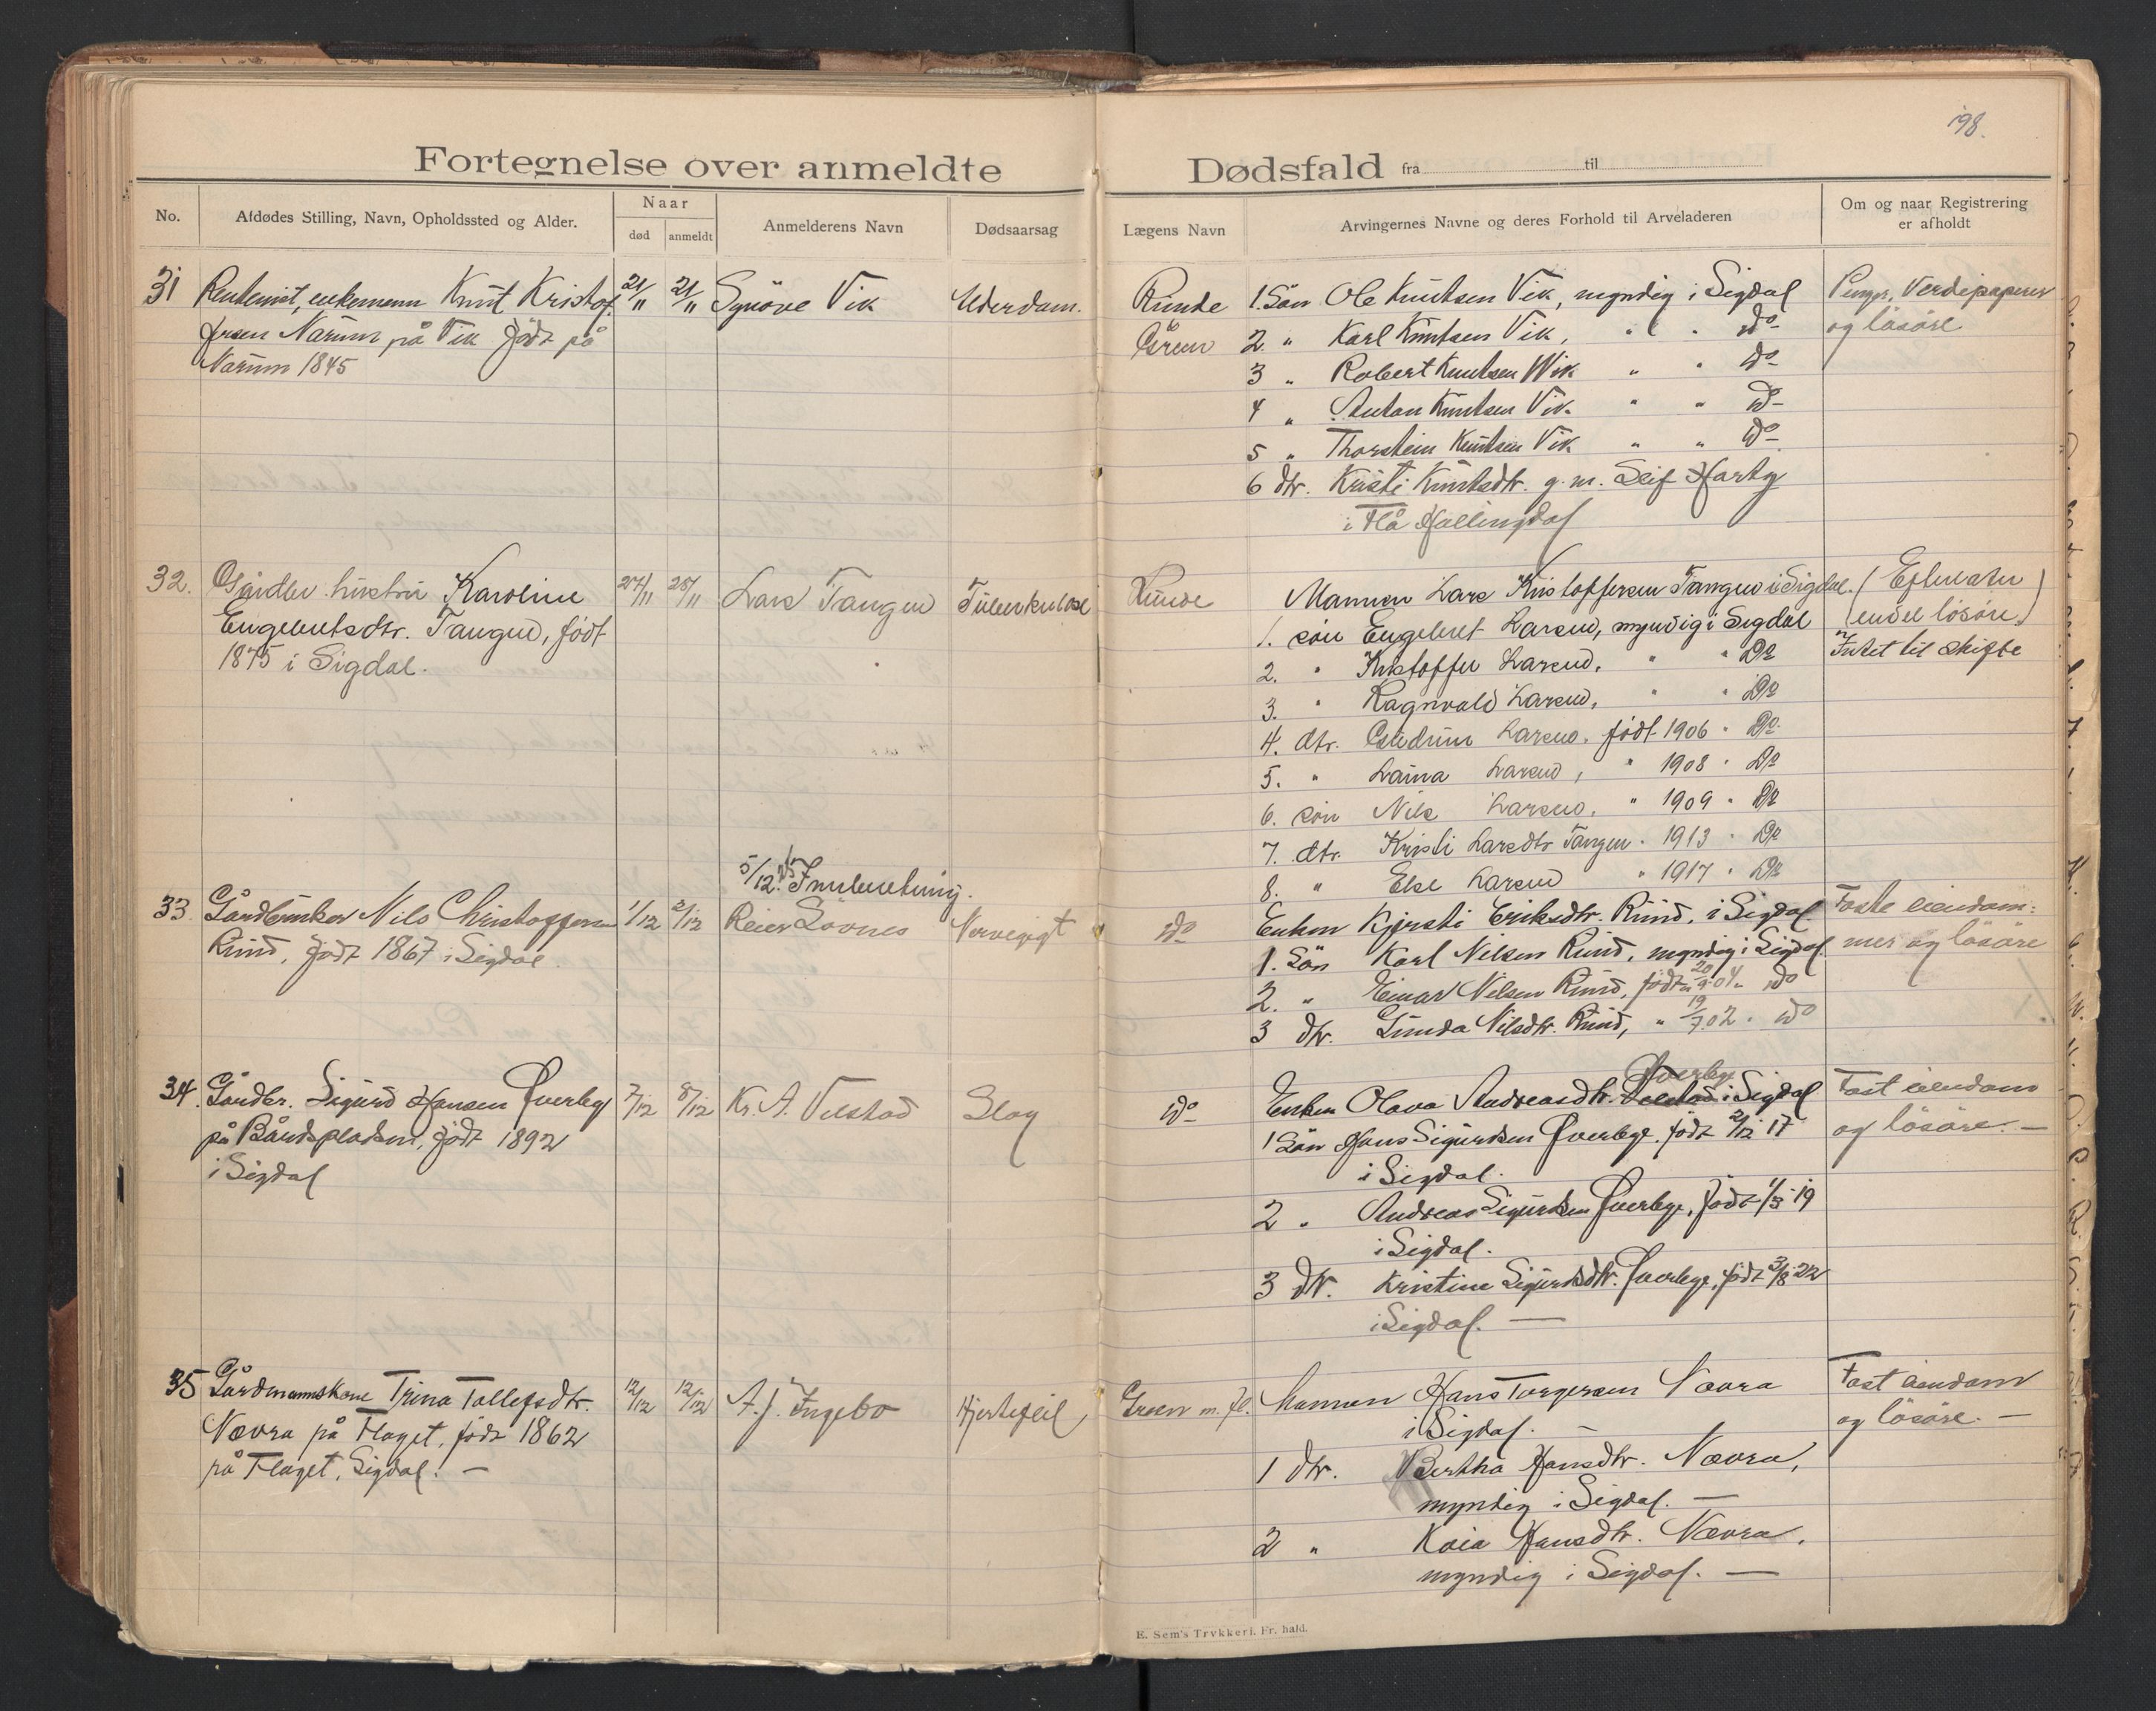 198.
Fortegnelse over anmeldte Dødsfald fra til
No.
Afdødes Stilling, Navn, Opholdssted og Alder.
Naar
død
anmeldt
Anmelderens Navn
Dødsaarsag
Lægens Navn
Arvingernes Navne og deres Forhold til Arveladeren
Om og naar Registrering
er afholdt
31 Rentenist, enkemann Knut Kristof= 21/11 21/11 Synöve Vik
fersen Narum på Vik född på
Narum 1845
Runde
Green
1. Sön Ole Knutsen Vik, myndig i Sigdal
2. " Karl Knutsen Vik, " " do
3 " Robert Knutsen Wik " " do
4 " Anton Knutsen Vik " " do
5 " Thorstein Knutsen Vik " " do
6 dtr. Kristi Knutsdtr. g. m. Leif
i Flå Hallingdal
Penger, Verdipapirer
og lösöre
32. Gårdbr. hustru Karoline 27/11 28/11 Lars Tangen Tuberkulose
Engebretsdtr. Tangen, født
1875 i Sigdal.
Runde
Mannen Lars Kristoffersen Tangen i Sigdal.
1. sön Engebret Larsen, myndig i Sigdal
2. " Kristoffer Larsen, " " Do
3. " Ragnvald Larsen, " " Do
4. dtr. Gudrun Larsen, født 1906 " Do
5. " Laura Larsen, " 1908 " Do
6. sön Nils Larsen, " 1909 " Do
7. dtr. Kristi Larsdtr Tangen " 1913 " Do
8. " Else Larsen " 1917 " Do
( Efterlater
endel lösöre )
Intet til skifte
5/12. Innberetning.
33. Gårdbruker Nils Christoffersen 1/12 2/12 Reier Lövnes Nervegigt
Rud, født 1867 i Sigdal
do
Enken Kjersti Eriksdtr. Rud, i Sigdal.
1. Sön Karl Nilsen Rud, myndig i Sigdal.
2. " Einar Nilsen Rud, född 20/9 04 " do
3 dtr. Gunda Nilsdtr. Rud, " 19/7 02 " do
Faste eiendom=
mer og lösöre
34. Gårdbr. Sigurd Hansen Överby 7/12 8/12 Kr. A. Velstad Slag
på Båndspladsen, född 1892
i Sigdal
do
Överby
Enken Olava Andreasdtr. Velstad i Sigdal
1 Sön Hans Sigurdsen Överbye, född 2/12 17
i Sigdal.
2 " Andreas Sigurdsen Överbye, född 1/3 - 19
i Sigdal.
3 dtr. Kristine Sigurdsdtr. Överbye, född 3/8 22
i Sigdal. —
Fast eiendom
og lösöre. —
35 Gårdmannskone Trina Tollefsdtr. 12/12 12/12 A. J. Ingebo Hjertefeil
Nævra på Flaget, född 1862
på Flaget, Sigdal. —
Green m. fl.
Mannen Hans Torgersen Nævra
i Sigdal.
1 dtr. Bertha Hansdtr. Nævra,
myndig i Sigdal. —
2 " Kaia Hansdtr. Nævra,
myndig i Sigdal. —
Fast eiendom
og lösöre. —
E. Sem's Trykkeri. Fr. hald.